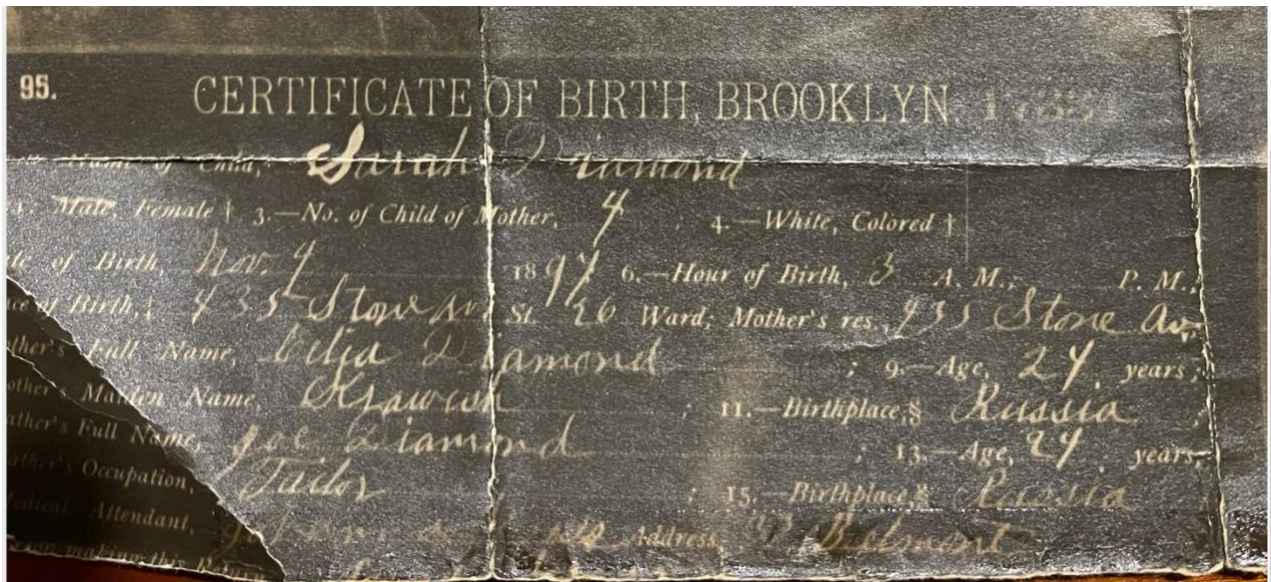 95. CERTIFICATE OF BIRTH, BROOKLYN.
Name of Child, Sarah Diamond
Male Female † 3.—No. of Child of Mother, 4 4.—White, Colored †
of Birth, Nov. 4 1897 6.—Hour of Birth, 3 A. M., P. M.,
of Birth,‡ 435 Stone Av. St. 26 Ward; Mother's res., 435 Stone Av.
other's Full Name, Celia Diamond ; 9.—Age, 24 years;
other's Maiden Name, ; 11.—Birthplace,§ Russia
ather's Full Name, Joe Diamond ; 13.—Age, 29 years;
ather's Occupation, Tailor ; 15.—Birthplace,§ Russia
edical Attendant, Address Belmont
making this Return